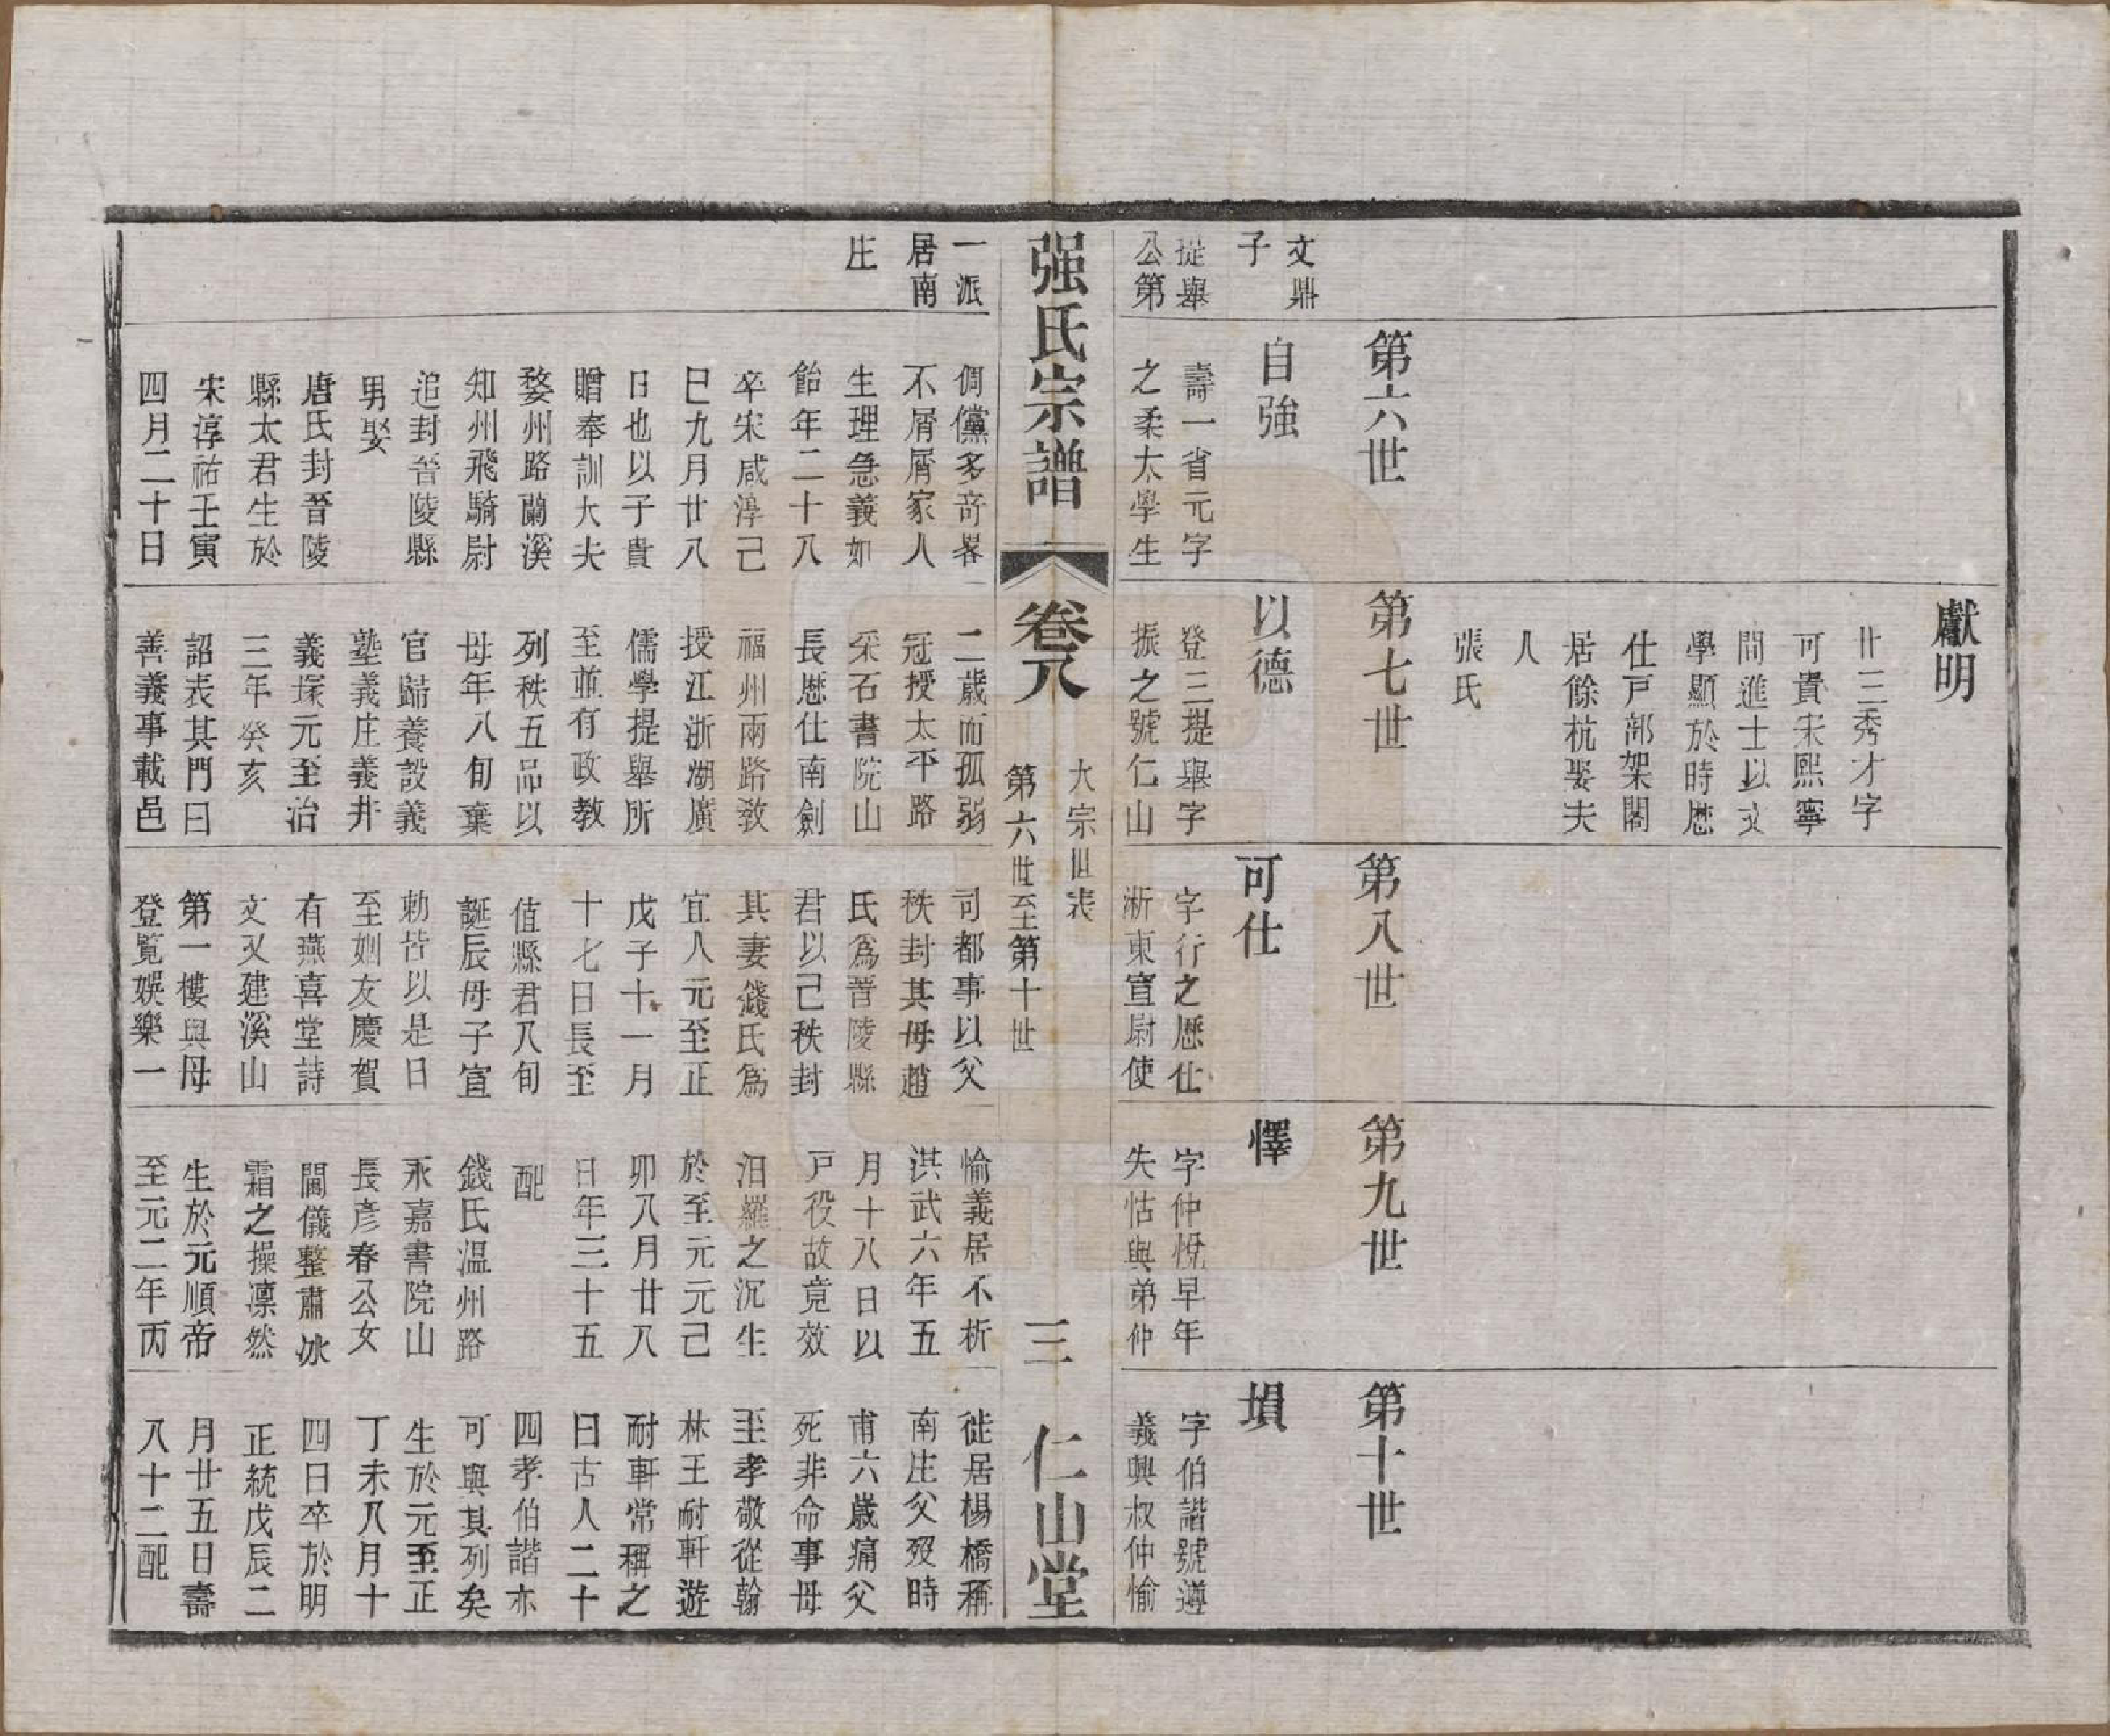 獻明
卄三秀才字
可貴宋熙寧
間進士以文
學顯於時歷
仕戸部架閣
居餘杭娶夫
人
張氏
第六世
第七世
第八世
第九世
第十世
文鼎
子
提舉
公第
自強
壽一省元字
之柔太學生
以德
登三提舉字
振之號仁山
可仕
字行之歷仕
浙東宣尉使
懌
字仲悅早年
失怙與弟仲
塤
字伯諧號遵
義興叔仲愉
强氏宗譜
卷八
大宗世表
第六世至第十世
三
仁山堂
一派
居南
庄
倜儻多奇畧
不屑屑家人
生理急義如
飴年二十八
卒宋咸淳己
巳九月廿八
日也以子貴
贈奉訓大夫
婺州路蘭溪
知州飛騎尉
追封晉陵縣
男娶
唐氏封晉陵
縣太君生於
宋淳祐壬寅
四月二十日
二歲而孤弱
冠授太平路
采石書院山
長歷仕南劍
福州兩路敎
授江浙湖廣
儒學提舉所
至並有政教
列秩五品以
母年八旬棄
官歸養設義
塾義庄義井
義塚元至治
三年癸亥
詔表其門曰
善義事載邑
司都事以父
秩封其母趙
氏爲晉陵縣
君以己秩封
其妻錢氏爲
宜人元至正
戊子十一月
十七日長至
值縣君八旬
誕辰母子宣
勅皆以是日
至姻友慶賀
有燕喜堂詩
文又建溪山
第一樓與母
登覧娛樂一
愉義居不析
洪武六年五
月十八日以
戸役故竟效
汨羅之沉生
於至元元己
卯八月廿八
日年三十五
配
錢氏溫州路
永嘉書院山
長彥春公女
閫儀整肅冰
霜之操凛然
生於元順帝
至元二年丙
徙居楊橋稱
南庄父歿時
甫六歲痛父
死非命事毋
至孝敬從翰
林王耐軒遊
耐軒常稱之
曰古人二十
四孝伯諧亦
可與其列矣
生於元至正
丁未八月十
四日卒於明
正統戊辰二
月廿五日壽
八十二配